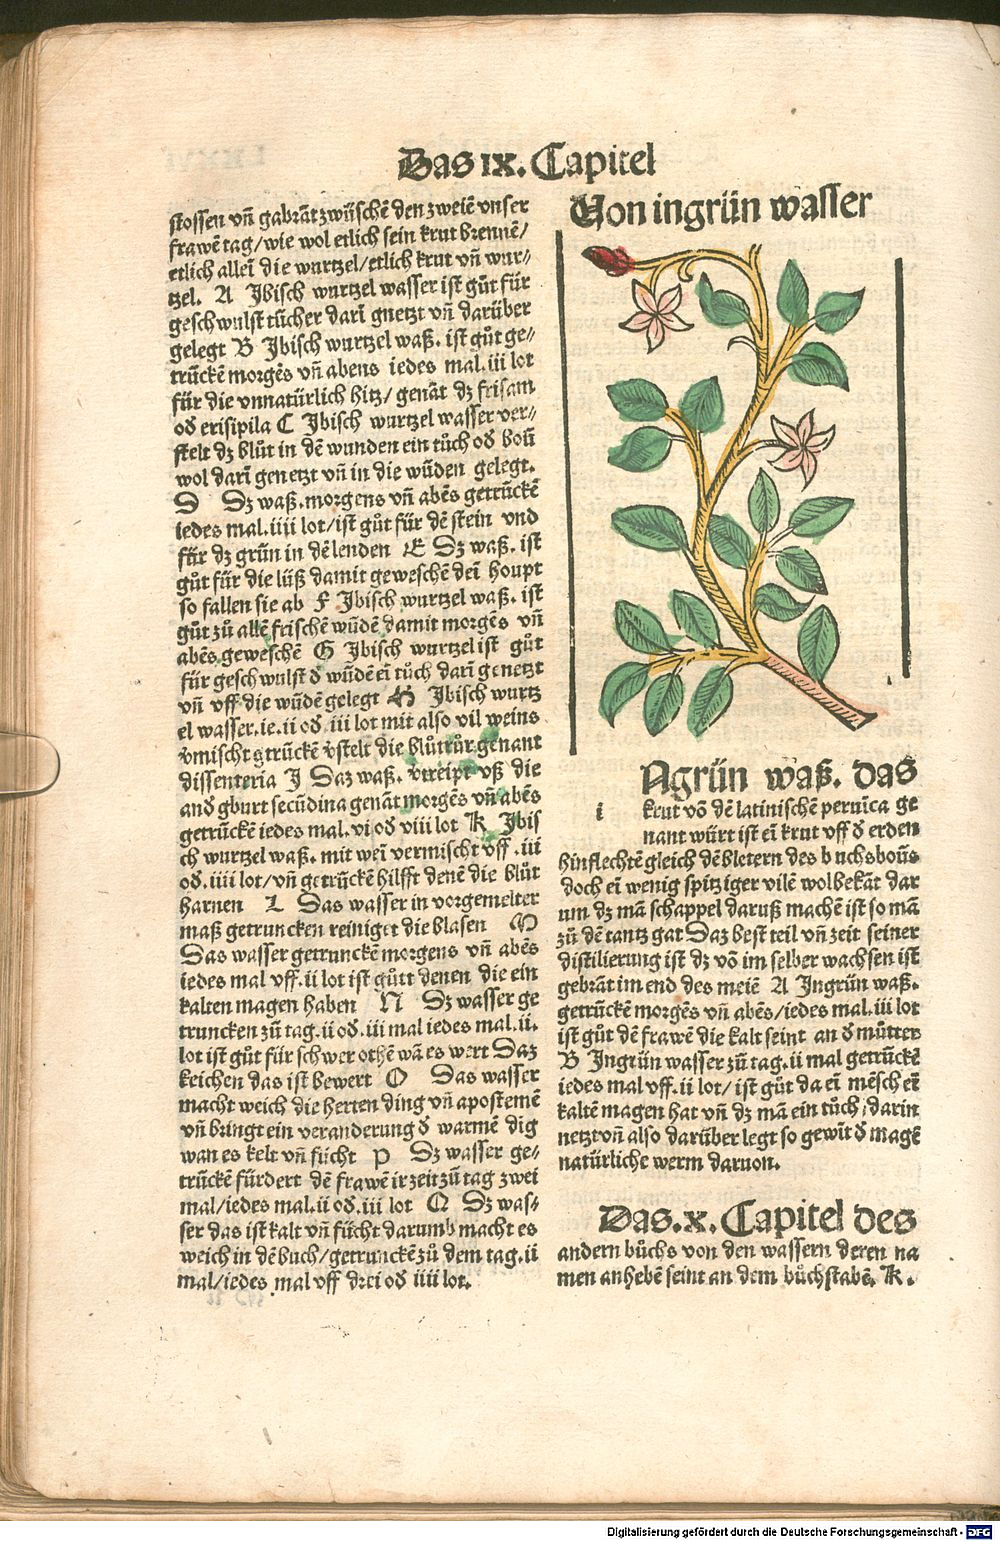 Das IX. Capitel
stossen vn̄ gabrāt zwüschē den zweiē vnser
frawē tag/wie wol etlich sein krut brennē/
etlich allei die wurtzel/etlich krut vn̄ wur⸗
tzel. A Ibisch wurtzel wasser ist gůt für
geschwulst tücher darī gnetzt vn̄ darüber
gelegt B Ibisch wurtzel waß. ist gůt ge⸗
trūckē morgēs vn̄ abens iedes mal. iii lot
für die vnnatürlich hitz/ genāt dz frisam
od erisipila C Ibisch wurtzel wasser ver⸗
stelt dz blůt in dē wunden ein tůch od boū
wol darī genetzt vn̄ in die wūden gelegt.
D Dz waß. morgens vn̄ abēs getrūckē
iedes mal. iiii lot/ist gůt für dē stein vnd
für dz grün in dē lenden E Dz waß. ist
gůt für die lüß damit geweschē deī houpt
so fallen sie ab F Ibisch wurtzel waß. ist
gůt zů allē frischē wūdē damit morgēs vn̄
abēs geweschē G Ibisch wurtzel ist gůt
für geschwulst d̄ wūdē eī tůch darī genetzt
vn̄ vff die wūdē gelegt H Ibisch wurtz
el wasser. ie. ii od. iii lot mit also vil weins
vmischt getrūckē vstelt die blůtrůr genant
dissenteria I Daz waß. vtreipt vß die
and gburt secūdina genāt morgēs vn̄ abēs
getrūckē iedes mal. vi od viii lot K Ibis
ch wurtzel waß. mit weī vermischt vff. iii
od. iiii lot/vn̄ getrūckē hilfft denē die blůt
harnen L Das wasser in vorgemelter
maß getruncken reiniget die blasen M
Das wasser getrunckē morgens vn̄ abēs
iedes mal vff. ii lot ist gůtt denen die ein
kalten magen haben N Dz wasser ge
truncken zů tag. ii od. iii mal iedes mal. ii.
lot ist gůt für schwer othē wā es wert Daz
keichen das ist bewert O Das wasser
macht weich die herten ding vn̄ apostemē
vn̄ bringt ein veranderung d̄ warmē dig
wan es kelt vn̄ fücht P Dz wasser ge⸗
trūckē fürdert dē frawē ir zeit zů tag zwei
mal/iedes mal. ii od. iii lot Q Dz was⸗
ser das ist kalt vn̄ fücht darumb macht es
weich in dē buch/getrunckē zů dem tag. ii
mal/iedes mal vff drei od iiii lot.
Von ingrün wasser
i Ngrün waß. das
krut vō dē latinischē peruīca ge
nant würt ist eī krut vff d̄ erden
hinflechtē gleich dē bletern des buchsboūs
doch eī wenig spitziger vilē wolbekāt dar
um dz mā schappel daruß machē ist so mā
zů dē tantz gat Daz best teil vn̄ zeit seiner
distilierung ist dz vō im selber wachsen ist
gebrāt im end des meiē A Ingrün waß.
getrūckē morgēs vn̄ abēs/iedes mal. iii lot
ist gůt dē frawē die kalt seint an d̄ můtter
B Ingrün wasser zů tag. ii mal getrūckē
iedes mal vff. ii lot/ ist gůt da eī mēsch eī
kaltē magen hat vn̄ dz mā ein tůch/darin
netzt vn̄ also darüber legt so gewīt d̄ magē
natürliche werm daruon.
Das. x. Capitel des
andern bůchs von den wassern deren na
men anhebē seint an dem bůchstabē. K.
Digitalisierung gefördert durch die Deutsche Forschungsgemeinschaft - DFG